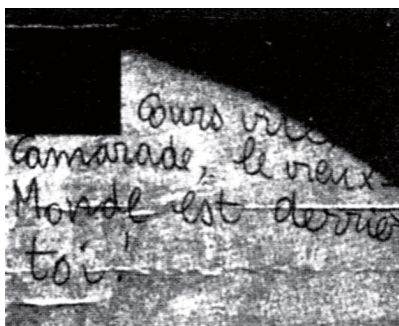 Cours vite
Camarade, le vieux-
Monde est derriè
toi!